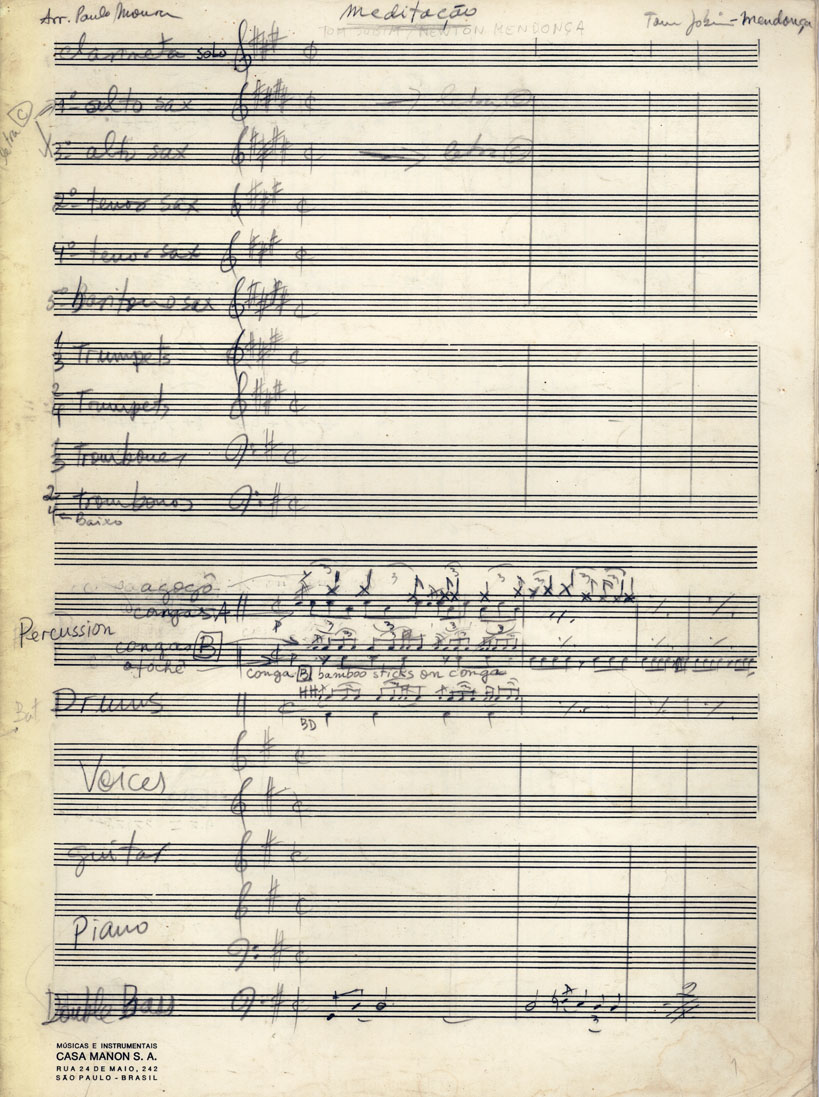 Arr. Paulo Moura
Meditação
Tom Jobim - Mendonça
TOM JOBIM / NEWTON MENDONÇA
clarineta solo
letra C
1º alto sax → letra C
3º alto sax → letra C
2º tenor sax
4º tenor sax
5º Baritono sax
1 3 Trumpets
2 4 Trumpets
1 3 Trombones
2 4 trombones
Baixo
agogô
congas A
Percussion
congas B
afochê
conga B bamboo sticks on conga
Bat
Drums
BD
Voices
guitar
Piano
Double Bass
MÚSICAS E INSTRUMENTAIS
CASA MANON S. A.
RUA 24 DE MAIO, 242
SÃO PAULO - BRASIL
1